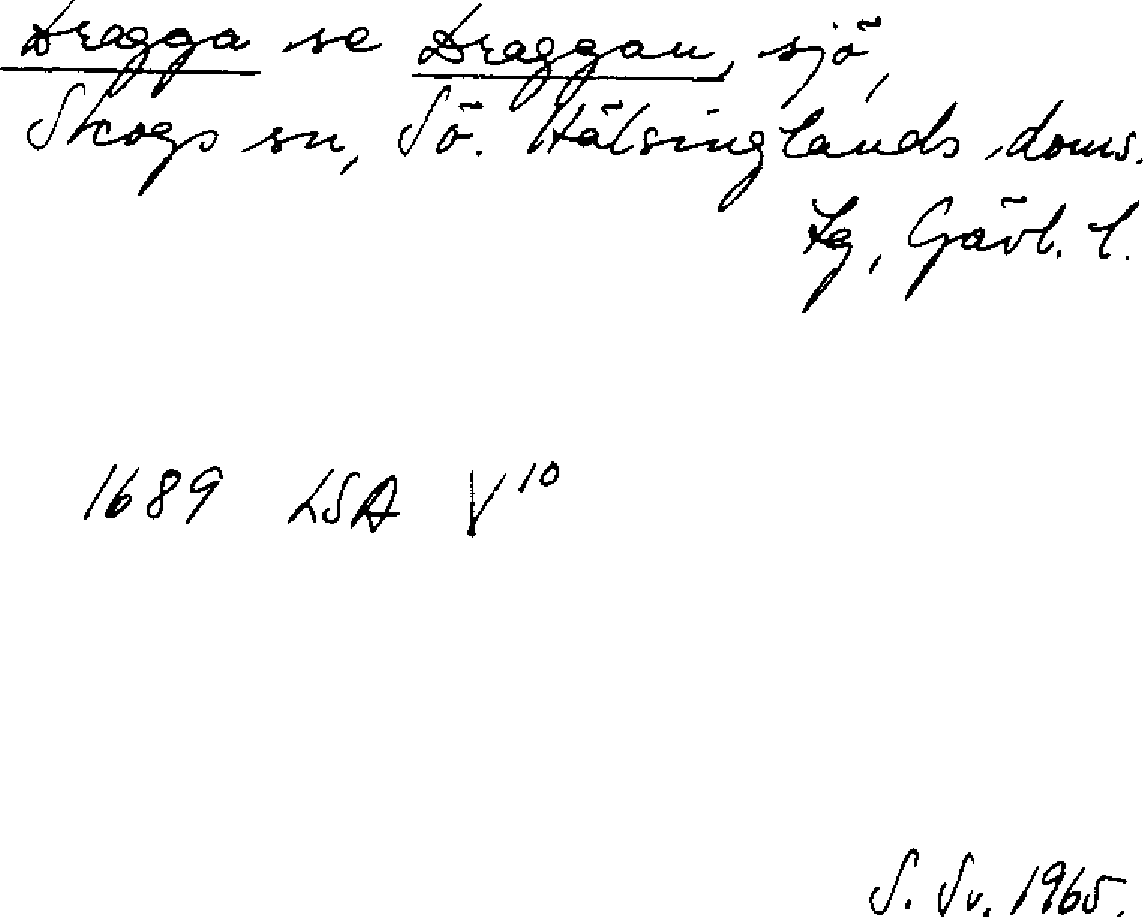 Dragga se Draggan, sjö,
Skogs sn, Sö. Hälsinglands doms.
Lg, Gävl. l.
1689 LSA V 10
S. Sv. 1965.